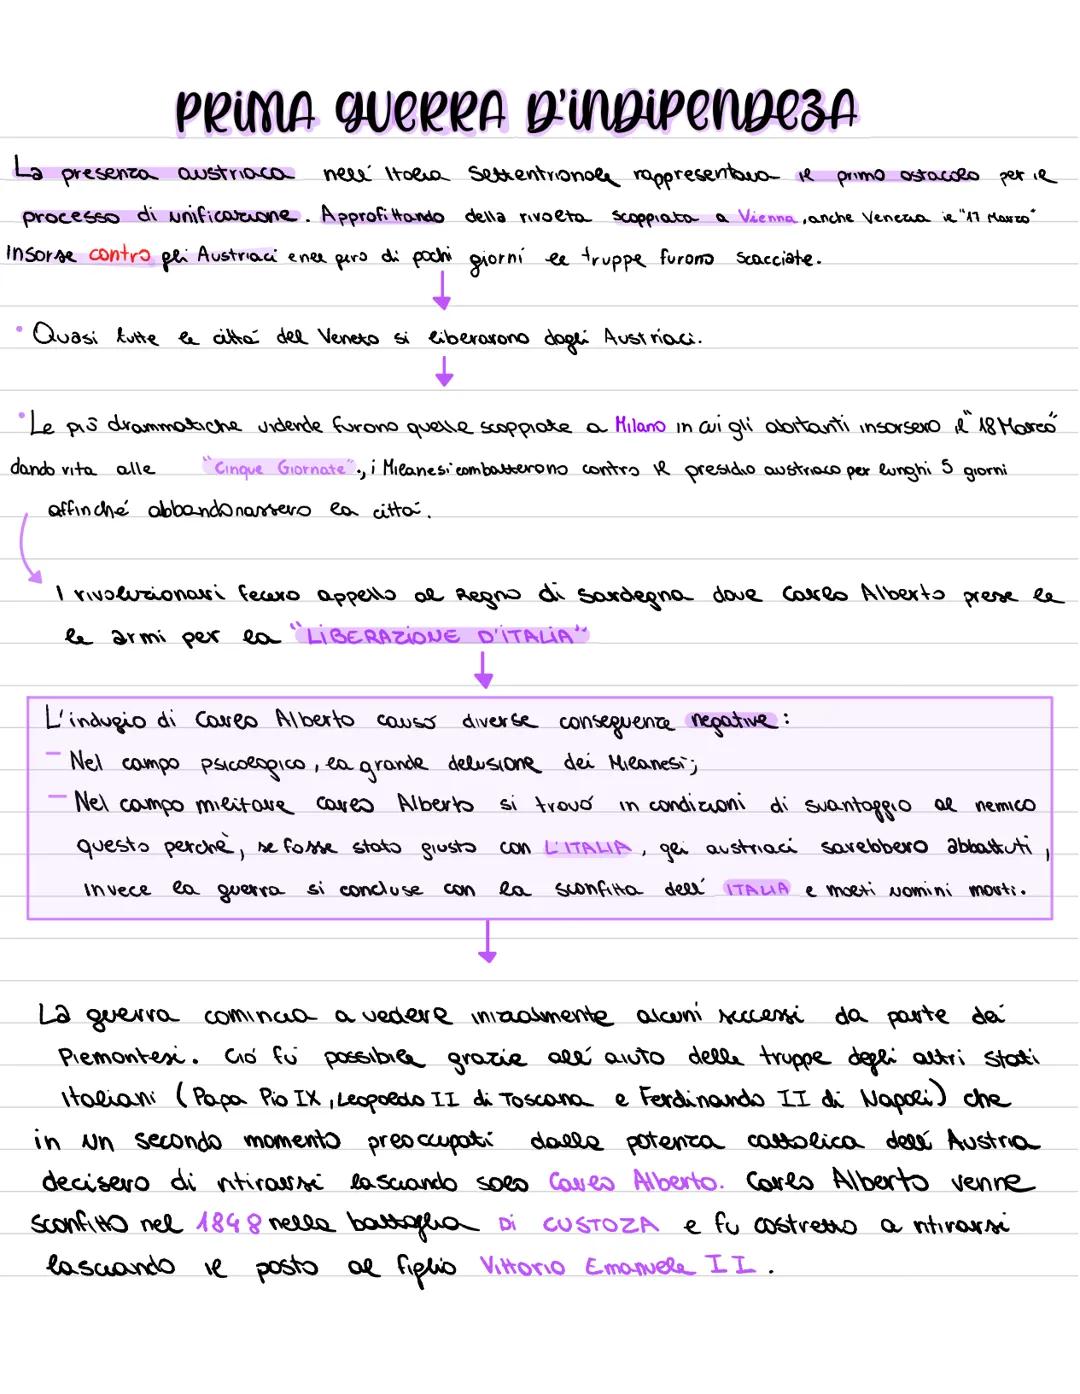 PRIMA GUERRA D'INDIPENDEZA
La presenza austriaca nell' Italia Settentrionale rappresentava il primo ostacolo per il
processo di unificazione. Approfittando della rivolta scoppiata a Vienna, anche Venezia il "17 Marzo"
insorse contro gli Austriaci e nel giro di pochi giorni le truppe furono scacciate.
• Quasi tutte le cittá del Veneto si liberarono dagli Austriaci.
• Le piú drammatiche vicende furono quelle scoppiate a Milano in cui gli abitanti insorsero il "18 Marzo"
dando vita alle "Cinque Giornate"., i Milanesi combatterono contro il presidio austriaco per lunghi 5 giorni
affinché abbandonassero la cittá.
I rivoluzionari fecero appello al Regno di Sardegna dove Carlo Alberto prese le
le armi per la "LIBERAZIONE D'ITALIA"
L'indugio di Carlo Alberto causó diverse conseguenze negative:
- Nel campo psicologico, la grande delusione dei Milanesi;
- Nel campo militare Carlo Alberto si trovó in condizioni di svantaggio al nemico
questo perchè, se fosse stato giusto con L'ITALIA, gli austriaci sarebbero abbattuti,
invece la guerra si concluse con la sconfitta dell' ITALIA e molti uomini morti.
La guerra comincia a vedere inizialmente alcuni successi da parte dei
Piemontesi. Ció fú possibile grazie all' aiuto delle truppe degli altri stati
Italiani (Papa Pio IX, Leopoldo II di Toscana e Ferdinando II di Napoli) che
in un secondo momento preoccupati dalla potenza cattolica dell' Austria
decisero di ritirarsi lasciando solo Carlo Alberto. Carlo Alberto venne
sconfitto nel 1848 nella battaglia Di CUSTOZA e fu costretto a ritirarsi
lasciando il posto al figlio Vittorio Emanuele II.